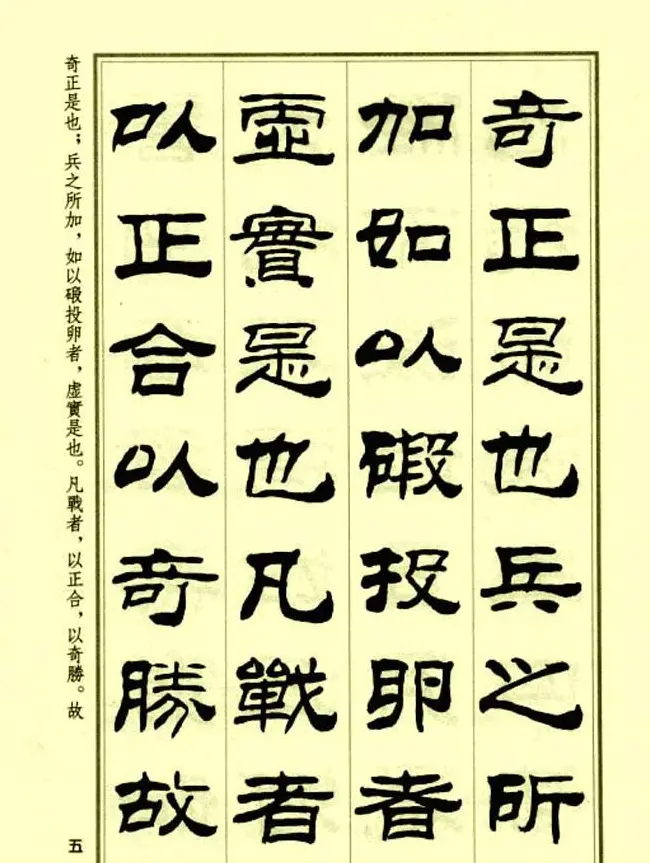 奇正是也兵之所
加如以碬投卵者
虛實是也凡戰者
以正合以奇勝故
奇正是也；兵之所加，如以碬投卵者，虛實是也。凡戰者，以正合，以奇勝。故
五